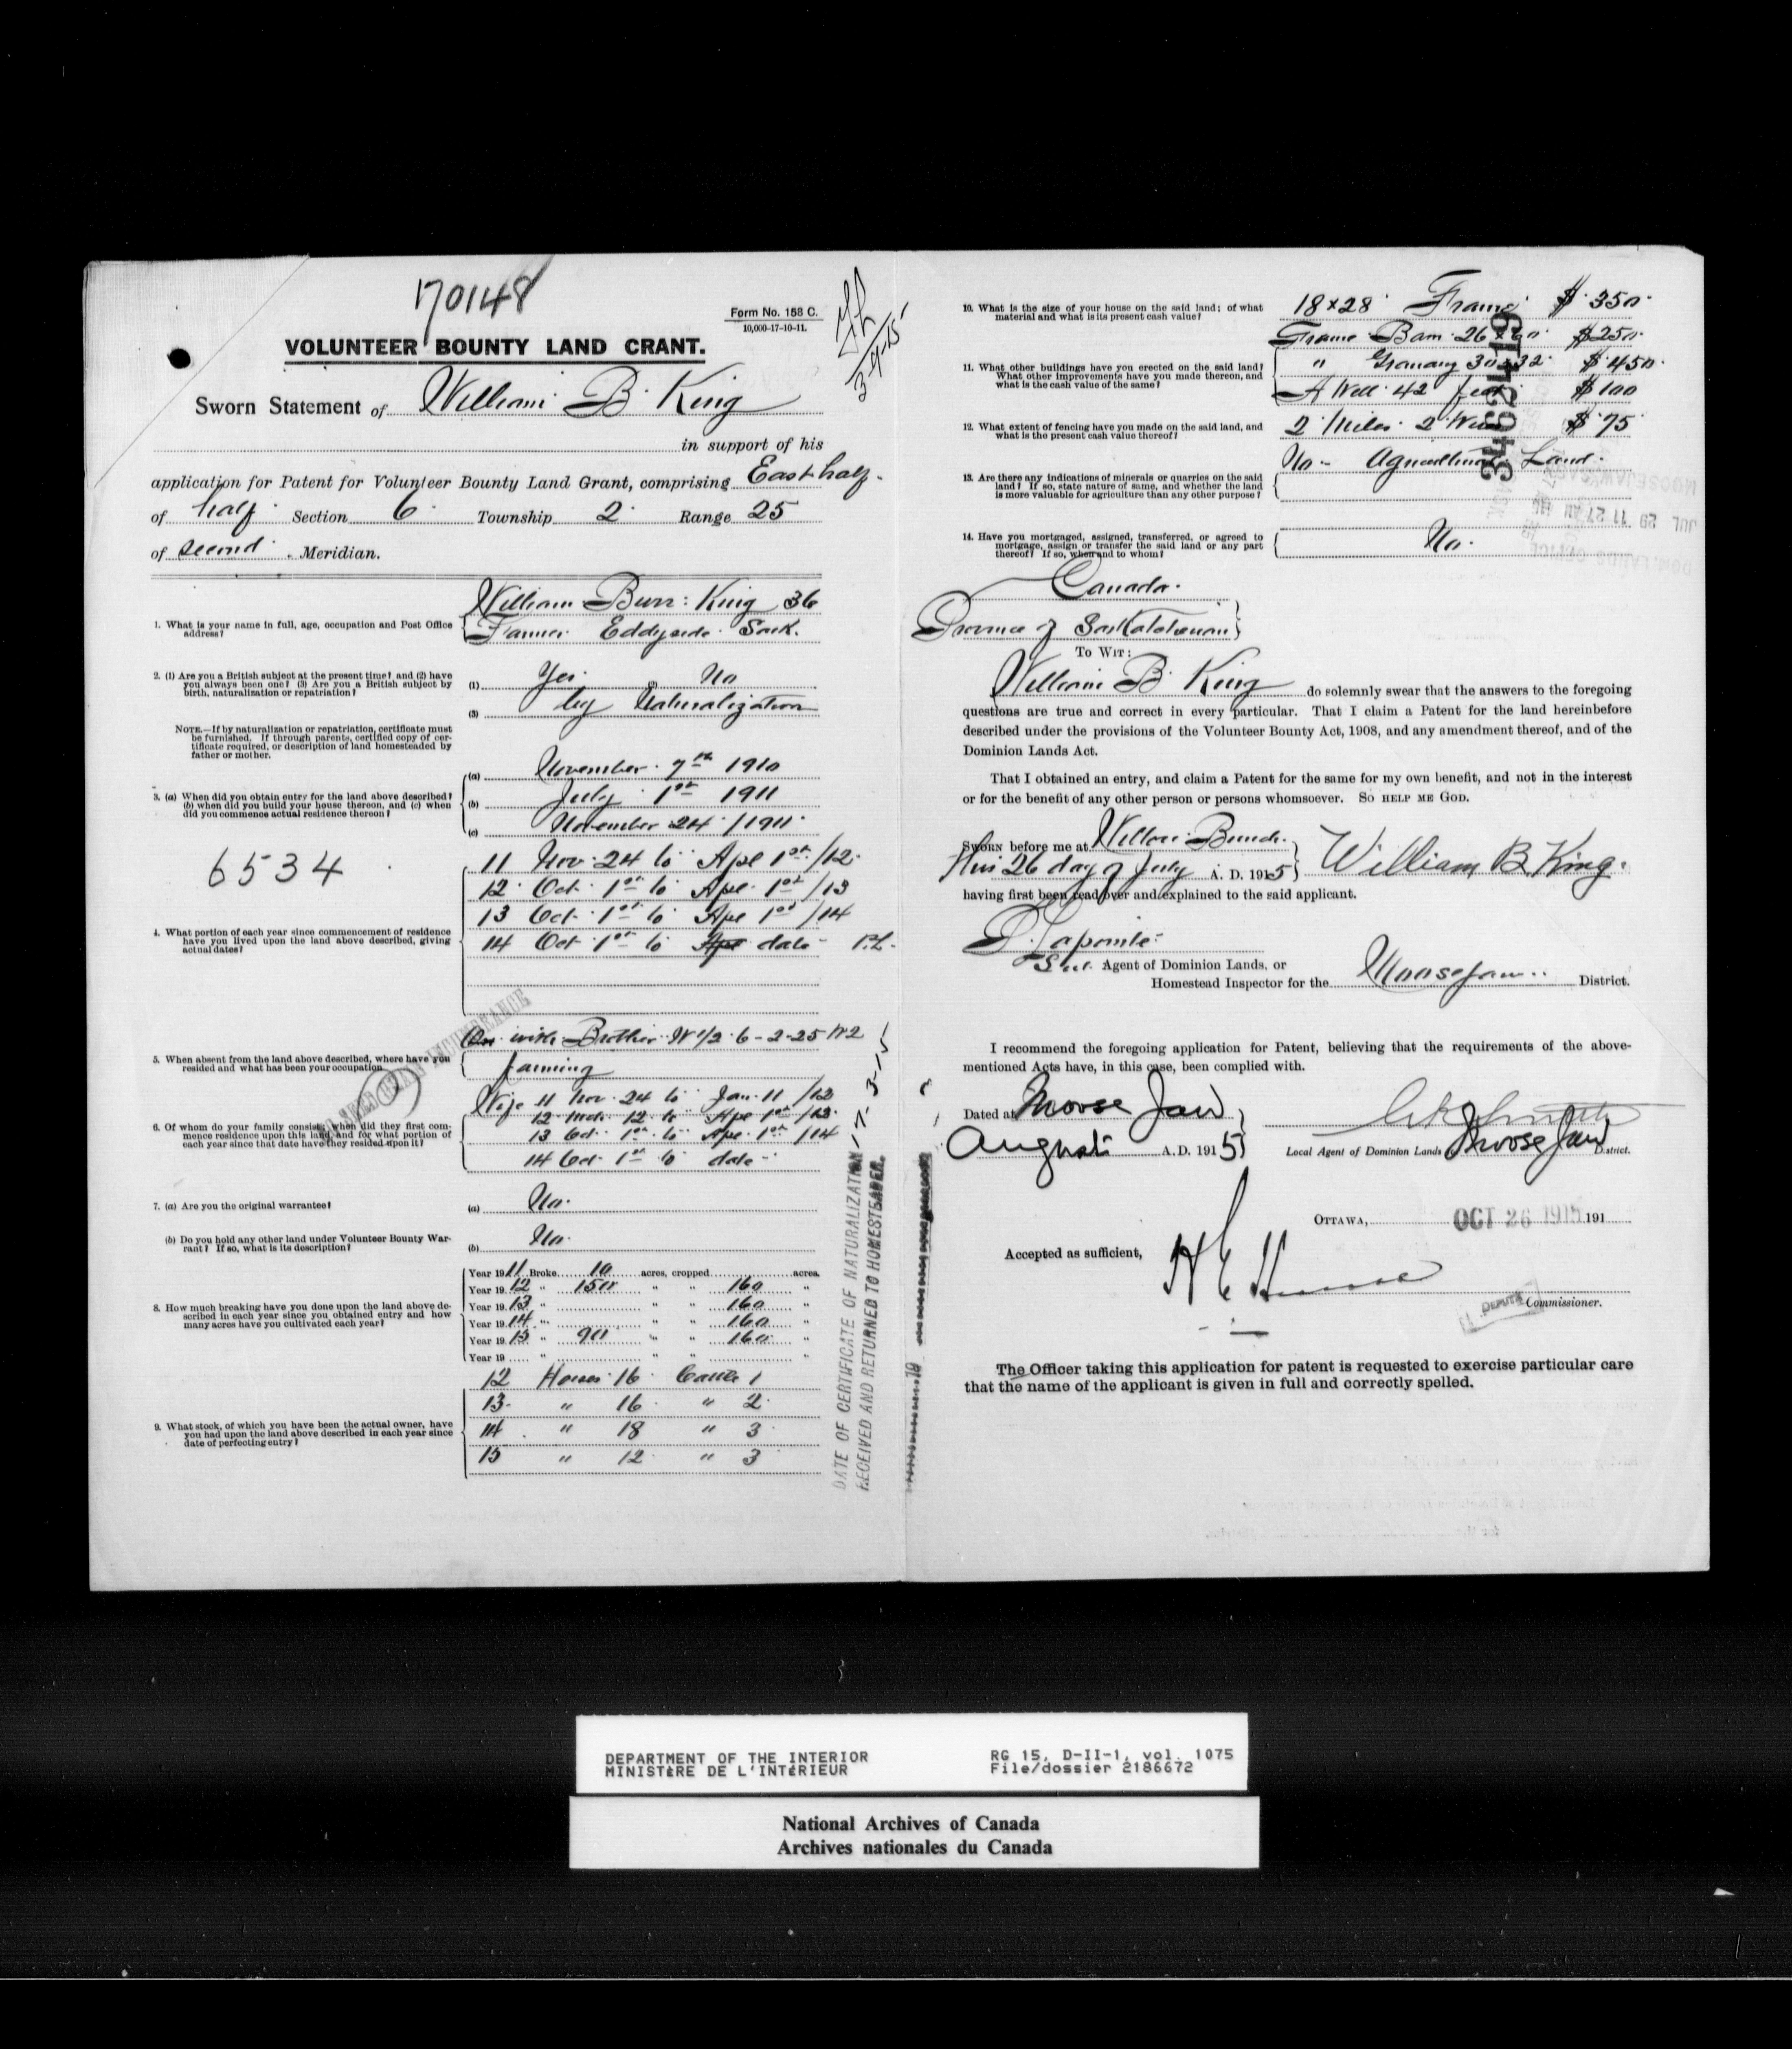 170148
Form No. 158 C.
10,000-17-10-11.
VOLUNTEER BOUNTY LAND GRANT.
Sworn Statement of William B. King
in support of his
application for Patent for Volunteer Bounty Land Grant, comprising East half
of half Section 6 Township 2 Range 25
of second Meridian.
1. What is your name in full, age, occupation and Post Office
address?
William Burr King 36
Farmer Eddyside Sask.
2. (1) Are you a British subject at the present time? and (2) have
you always been one? (3) Are you a British subject by
birth, naturalization or repatriation?
(1) Yes (2) No
(3) by Naturalization
NOTE.—If by naturalization or repatriation, certificate must
be furnished. If through parents, certified copy of cer-
tificate required, or description of land homesteaded by
father or mother.
3. (a) When did you obtain entry for the land above described?
(b) when did you build your house thereon, and (c) when
did you commence actual residence thereon?
(a) November 7th 1910
(b) July 1st 1911
(c) November 24 / 1911
6534
4. What portion of each year since commencement of residence
have you lived upon the land above described, giving
actual dates?
11 Nov. 24 to Apl 1st /12
12 Oct. 1st to Apl 1st /13
13 Oct 1st to Apl 1st /14
14 Oct 1st to Apl date P.L.
5. When absent from the land above described, where have you
resided and what has been your occupation
On with Brother W 1/2 6-2-25 W2
farming
6. Of whom do your family consist, when did they first com-
mence residence upon this land, and for what portion of
each year since that date have they resided upon it?
Wife 11 Nov. 24 to Jan. 11 /12
12 Oct. 12 to Apl 1st /13
13 Oct 1st to Apl 1st /14
14 Oct 1st to date
7. (a) Are you the original warrantee?
(a) No
(b) Do you hold any other land under Volunteer Bounty War-
rant? If so, what is its description?
(b) No
8. How much breaking have you done upon the land above de-
scribed in each year since you obtained entry and how
many acres have you cultivated each year?
Year 1911 Broke 10 acres, cropped acres.
Year 1912 " 150 " " 160 "
Year 1913 " " " 160 "
Year 1914 " " " 160 "
Year 1915 " 90 " " 160 "
Year 19 " " " "
9. What stock, of which you have been the actual owner, have
you had upon the land above described in each year since
date of perfecting entry?
12 Horses 16 Cattle 1
13 " 16 " 2
14 " 18 " 3
15 " 12 " 3
DATE OF CERTIFICATE OF NATURALIZATION 17-3-15
RECEIVED AND RETURNED TO HOMESTEADER.
10. What is the size of your house on the said land; of what
material and what is its present cash value?
18x28 Frame $350
11. What other buildings have you erected on the said land?
What other improvements have you made thereon, and
what is the cash value of the same?
Frame Barn 26x60 $250
" Granary 30x32 $450
A Well 42 feet $100
12. What extent of fencing have you made on the said land, and
what is the present cash value thereof?
2 Miles 2 Wire $75
13. Are there any indications of minerals or quarries on the said
land? If so, state nature of same, and whether the land
is more valuable for agriculture than any other purpose?
No - Agricultural Land
14. Have you mortgaged, assigned, transferred, or agreed to
mortgage, assign or transfer the said land or any part
thereof? If so, when and to whom?
No.
3462419
Canada
Province of Saskatchewan
TO WIT:
William B. King do solemnly swear that the answers to the foregoing
questions are true and correct in every particular. That I claim a Patent for the land hereinbefore
described under the provisions of the Volunteer Bounty Act, 1908, and any amendment thereof, and of the
Dominion Lands Act.
That I obtained an entry, and claim a Patent for the same for my own benefit, and not in the interest
or for the benefit of any other person or persons whomsoever. SO HELP ME GOD.
SWORN before me at Willow Bunch
this 26 day of July A. D. 1915
William B. King.
having first been read over and explained to the said applicant.
P. Lapointe
Sub. Agent of Dominion Lands, or
Homestead Inspector for the Moose Jaw District.
I recommend the foregoing application for Patent, believing that the requirements of the above-
mentioned Acts have, in this case, been complied with.
Dated at Moose Jaw
August A.D. 1915
Local Agent of Dominion Lands Moose Jaw District.
OTTAWA, OCT 26 1915 191
Accepted as sufficient,
DEPUTY Commissioner.
The Officer taking this application for patent is requested to exercise particular care
that the name of the applicant is given in full and correctly spelled.
DEPARTMENT OF THE INTERIOR
MINISTÈRE DE L'INTÉRIEUR
RG 15, D-II-1, vol. 1075
File/dossier 2186672
National Archives of Canada
Archives nationales du Canada